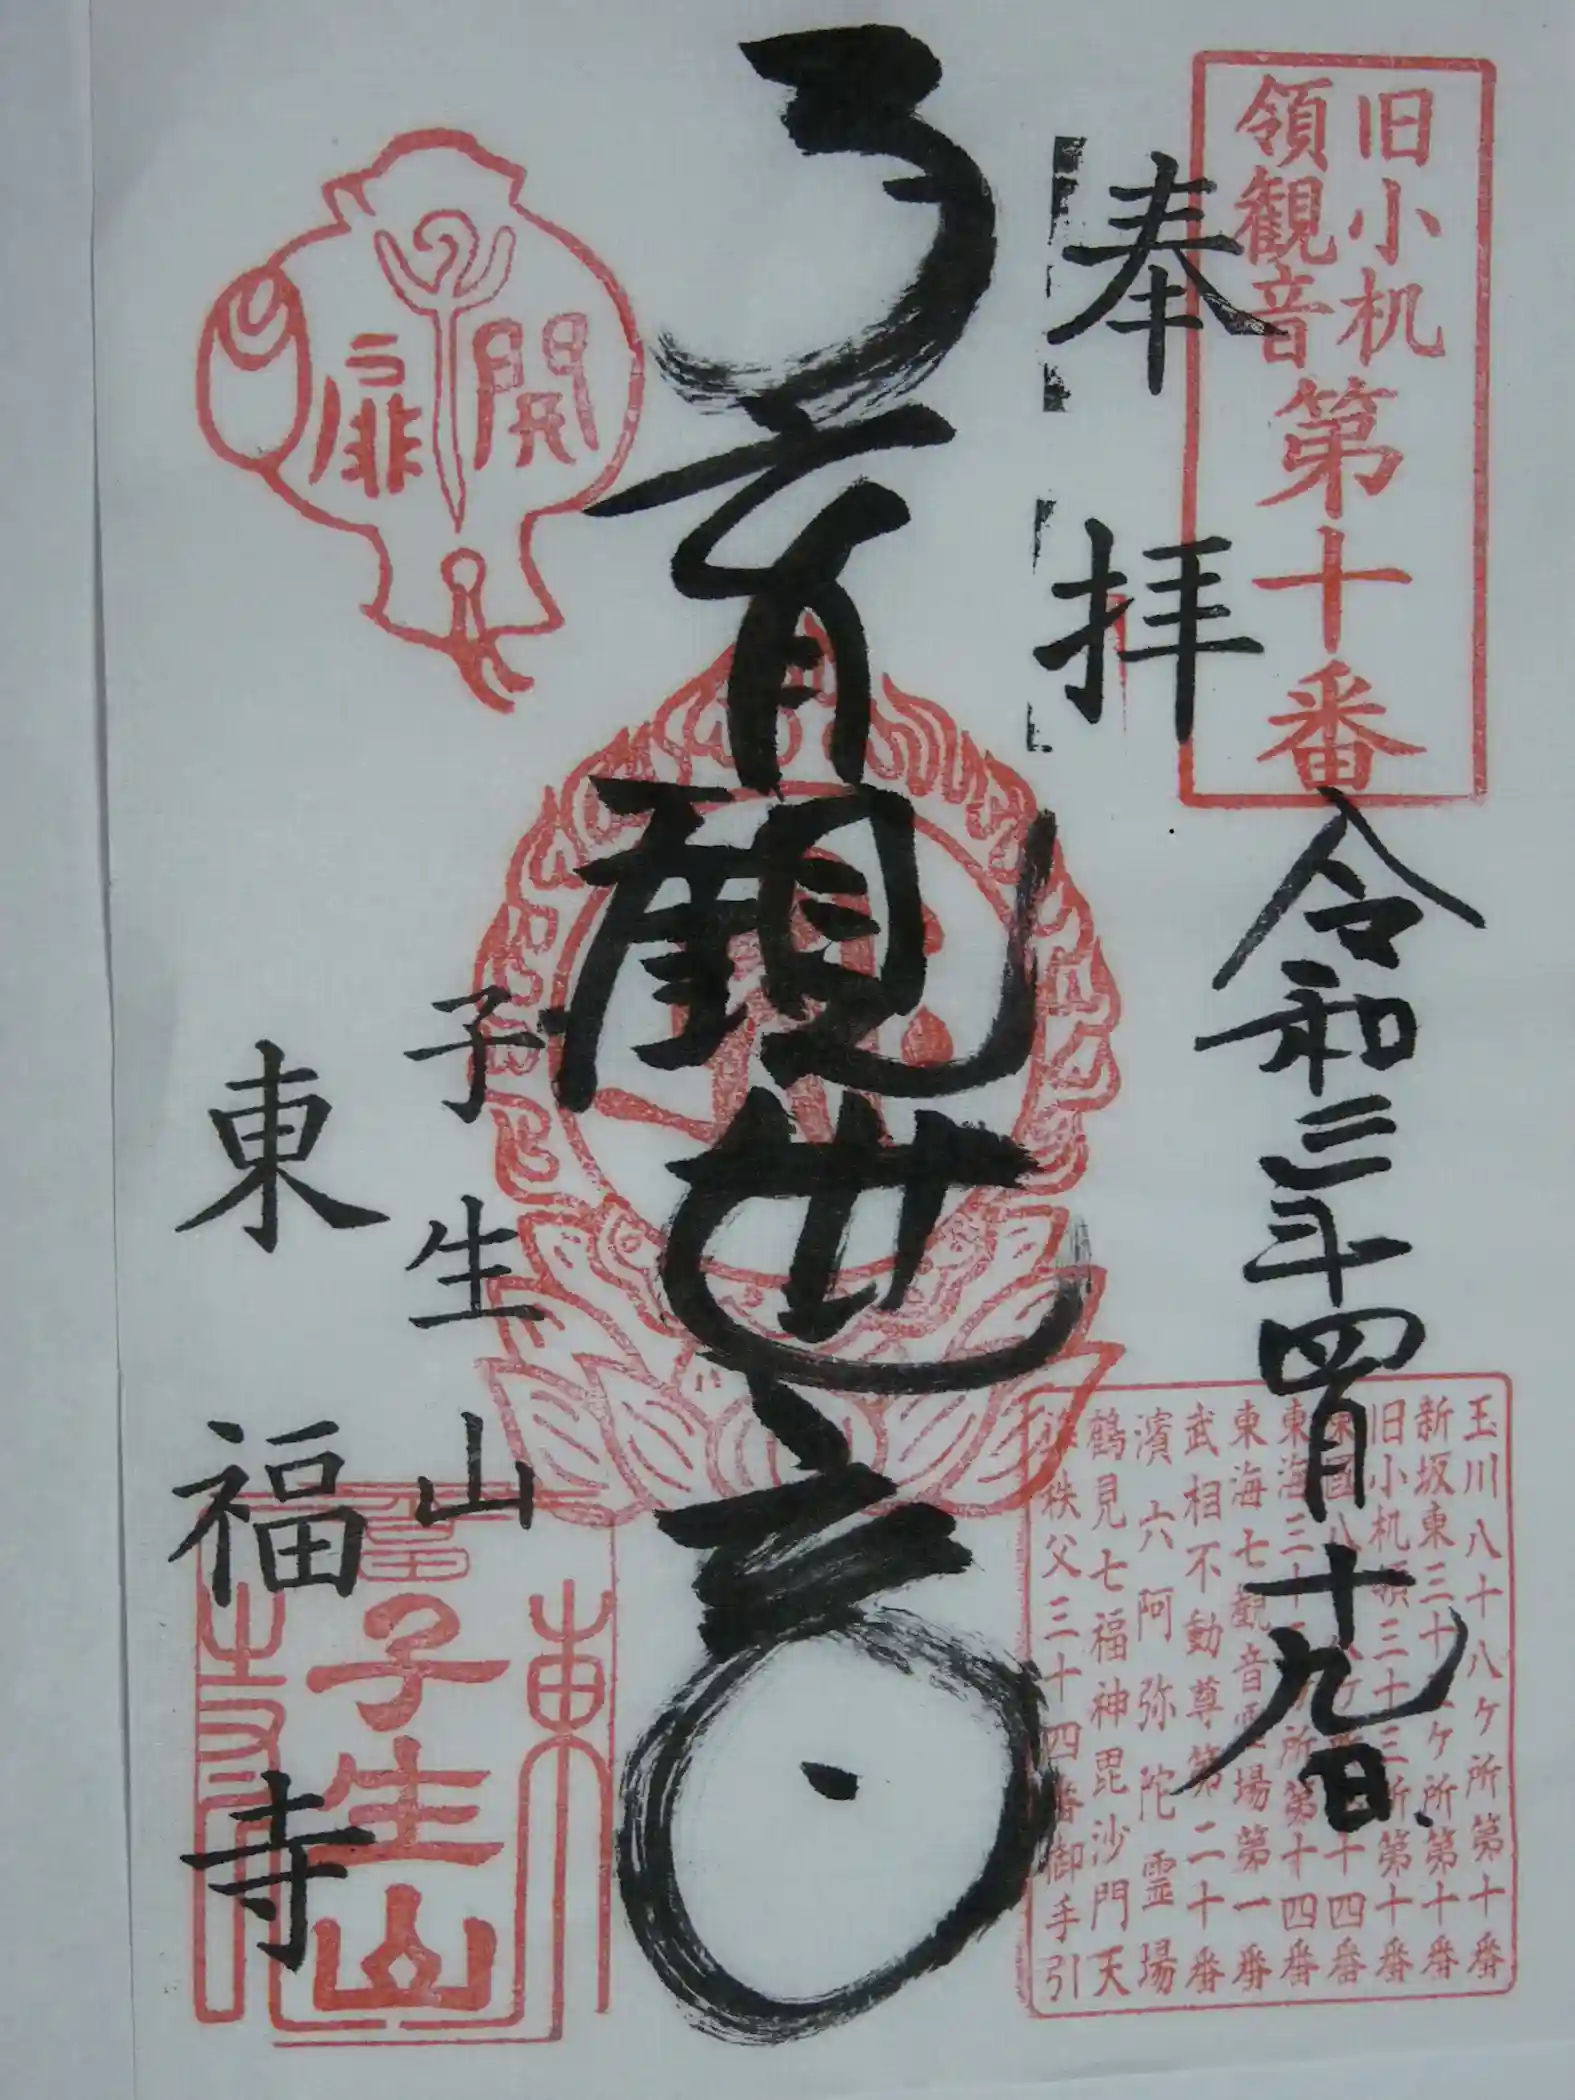 旧小机
領観音
第十番
奉拝
令和三年四月十九日
子育観世音
子生山
東福寺
開扉
玉川八十八ヶ所第十番
新坂東三十ヶ所第十番
旧小机領三十三所第十番
八十四番
東海三十所第十四番
東海七観音霊場第一番
武相不動尊第二十番
濱六阿弥陀霊場
鶴見七福神毘沙門天
秩父三十四番御手引
東
子生山
寺